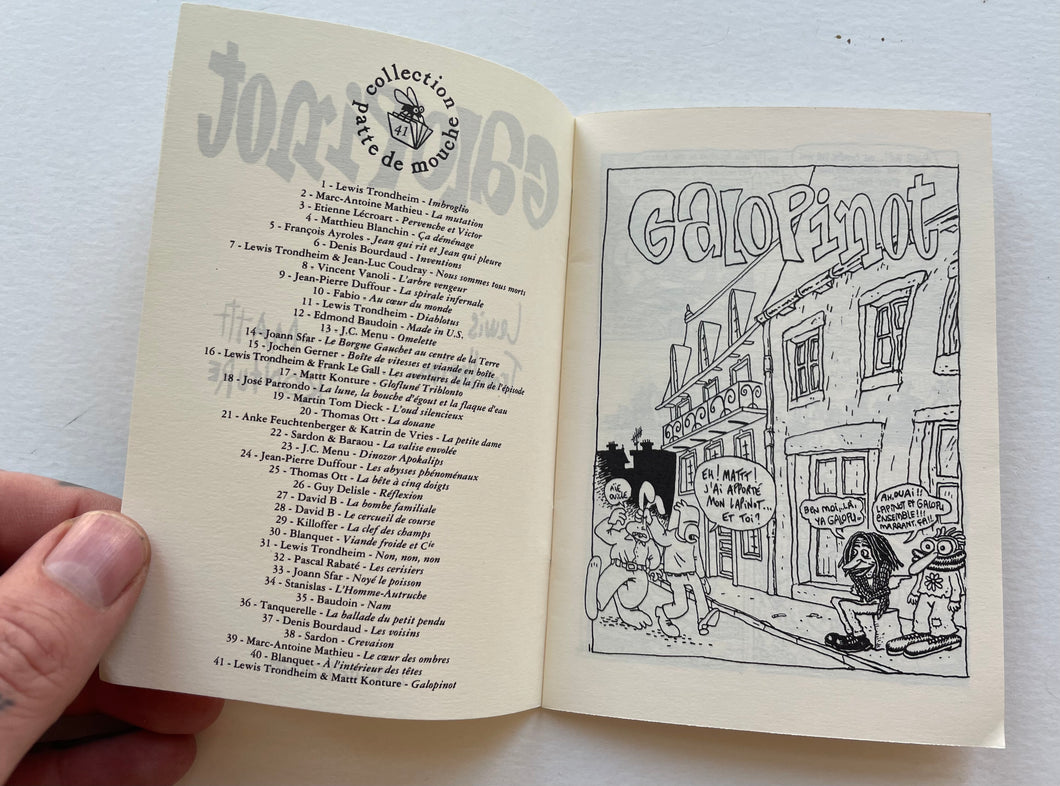 collection
patte de mouche
41
1 - Lewis Trondheim - Imbroglio
2 - Marc-Antoine Mathieu - La mutation
3 - Etienne Lécroart - Pervenche et Victor
4 - Matthieu Blanchin - Ça déménage
5 - François Ayroles - Jean qui rit et Jean qui pleure
6 - Denis Bourdaud - Inventions
7 - Lewis Trondheim & Jean-Luc Coudray - Nous sommes tous morts
8 - Vincent Vanoli - L'arbre vengeur
9 - Jean-Pierre Duffour - La spirale infernale
10 - Fabio - Au cœur du monde
11 - Lewis Trondheim - Diablotus
12 - Edmond Baudoin - Made in U.S.
13 - J.C. Menu - Omelette
14 - Joann Sfar - Le Borgne Gauchet au centre de la Terre
15 - Jochen Gerner - Boîte de vitesses et viande en boîte
16 - Lewis Trondheim & Frank Le Gall - Les aventures de la fin de l'épisode
17 - Mattt Konture - Glofluné Triblonto
18 - José Parrondo - La lune, la bouche d'égout et la flaque d'eau
19 - Martin Tom Dieck - L'oud silencieux
20 - Thomas Ott - La douane
21 - Anke Feuchtenberger & Katrin de Vries - La petite dame
22 - Sardon & Baraou - La valise envolée
23 - J.C. Menu - Dinozor Apokalips
24 - Jean-Pierre Duffour - Les abysses phénoménaux
25 - Thomas Ott - La bête à cinq doigts
26 - Guy Delisle - Réflexion
27 - David B - La bombe familiale
28 - David B - Le cercueil de course
29 - Killoffer - La clef des champs
30 - Blanquet - Viande froide et Cie
31 - Lewis Trondheim - Non, non, non
32 - Pascal Rabaté - Les cerisiers
33 - Joann Sfar - Noyé le poisson
34 - Stanislas - L'Homme-Autruche
35 - Baudoin - Nam
36 - Tanquerelle - La ballade du petit pendu
37 - Denis Bourdaud - Les voisins
38 - Sardon - Crevaison
39 - Marc-Antoine Mathieu - Le cœur des ombres
40 - Blanquet - À l'intérieur des têtes
41 - Lewis Trondheim & Mattt Konture - Galopinot
GALOPinot
AÏE
OUILLE
EH! MATTT
J'AI APPORTÉ
MON LAPINOT...
ET TOI?
BEN MOI, LÀ,
YA GALOPU..
AH, OUAI!!
LAPINOT ET GALOPU
ENSEMBLE!!!
MARRANT, ÇA!!